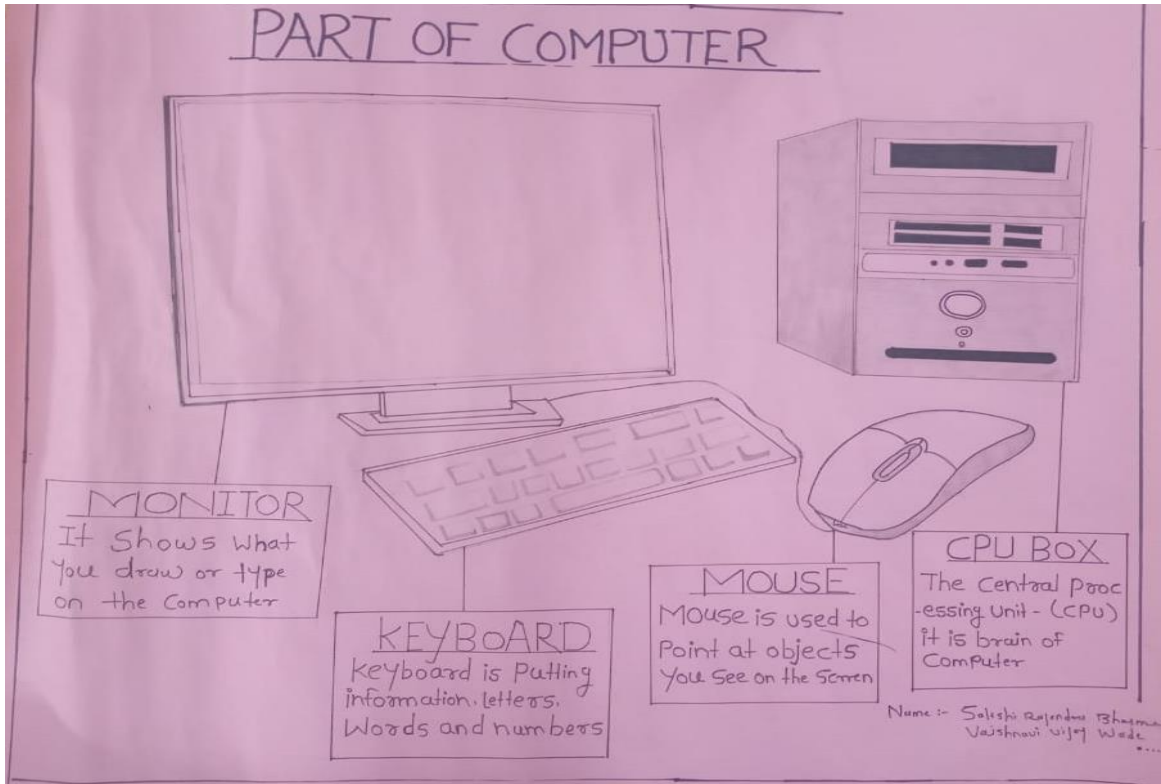 PART OF COMPUTER
MONITOR
It Shows What
You draw or type
on the Computer
KEYBOARD
Keyboard is Putting
information, letters,
Words and numbers
MOUSE
Mouse is used to
Point at objects
You See on the Screen
CPU BOX
The Central Proc
-essing Unit - (CPU)
it is brain of
Computer
Name :-
Vaishnavi Vijay Wade